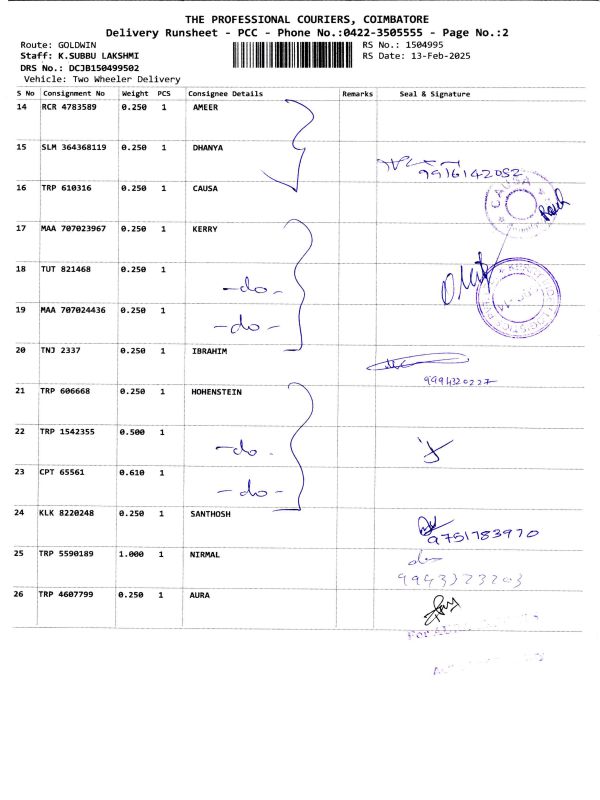 THE PROFESSIONAL COURIERS, COIMBATORE
Delivery Runsheet - PCC - Phone No.:0422-3505555 - Page No.:2
Route: GOLDWIN
RS No.: 1504995
Staff: K.SUBBU LAKSHMI
RS Date: 13-Feb-2025
DRS No.: DCJB150499502
Vehicle: Two Wheeler Delivery
S No Consignment No Weight PCS Consignee Details Remarks Seal & Signature
14 RCR 4783589 0.250 1 AMEER
15 SLM 364368119 0.250 1 DHANYA
9916142052
16 TRP 610316 0.250 1 CAUSA
CAUSA
17 MAA 707023967 0.250 1 KERRY
18 TUT 821468 0.250 1
-do-
19 MAA 707024436 0.250 1
-do-
20 TNJ 2337 0.250 1 IBRAHIM
9994320227
21 TRP 606668 0.250 1 HOHENSTEIN
22 TRP 1542355 0.500 1
-do-
23 CPT 65561 0.610 1
-do-
24 KLK 8220248 0.250 1 SANTHOSH
9751783970
25 TRP 5590189 1.000 1 NIRMAL
26 TRP 4607799 0.250 1 AURA